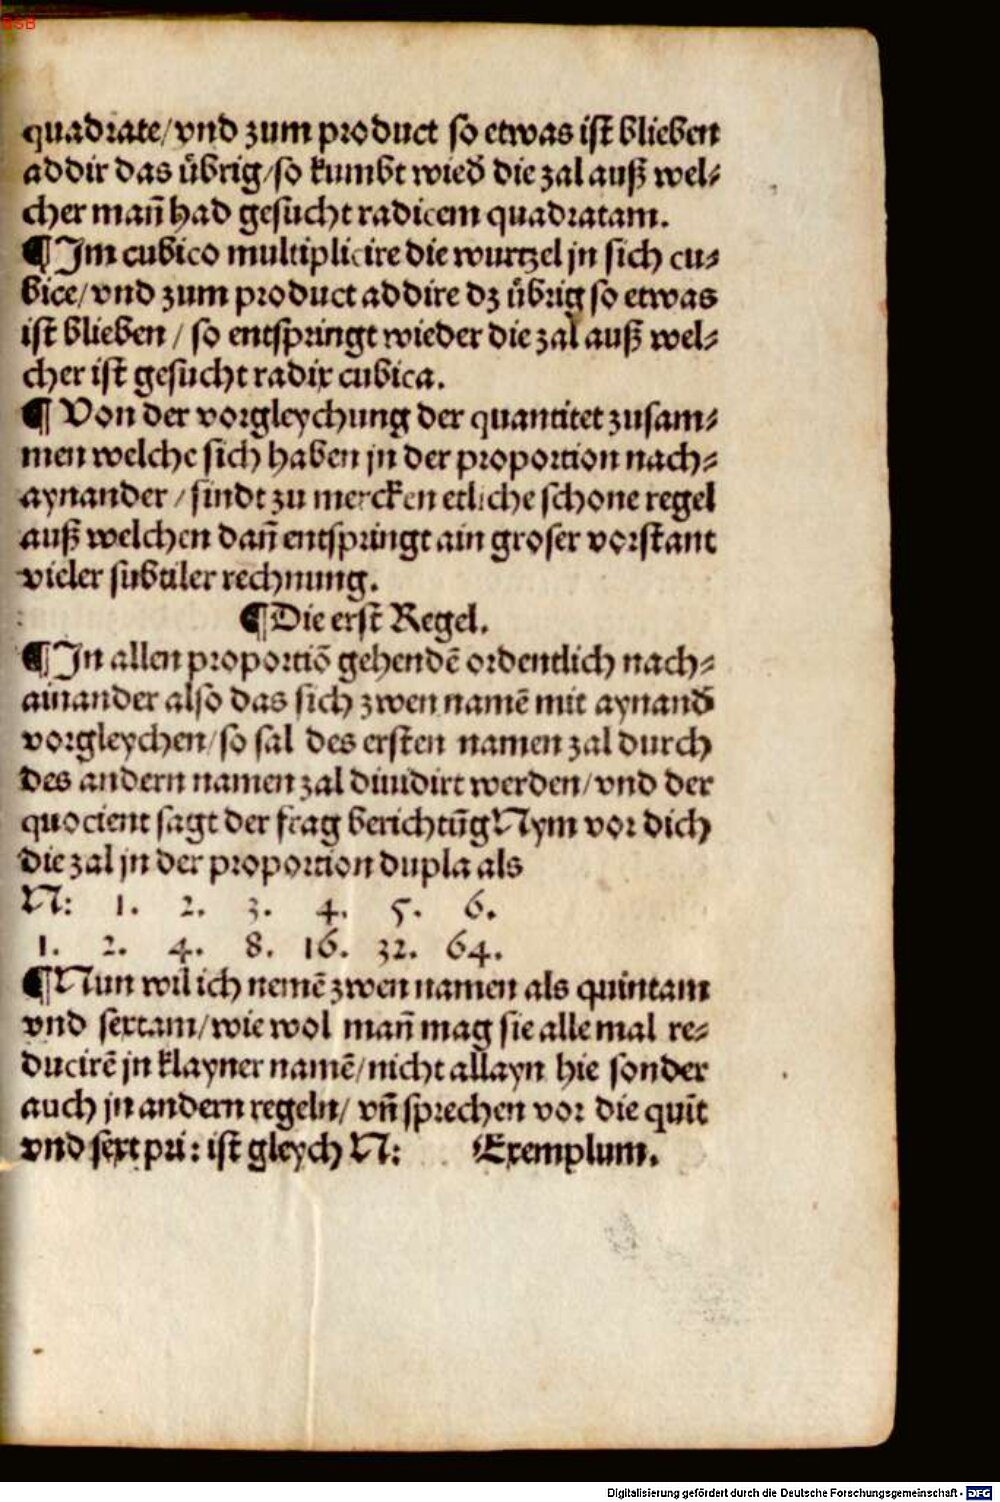 BSB
quadrate/vnd zum product so etwas ist blieben
addir das übrig/so kumbt wied̄ die zal auß wel⸗
cher man̄ had gesucht radicem quadratam.
¶ Jm cubico multiplicire die wurtzel jn sich cu⸗
bice/vnd zum product addire dz übrig so etwas
ist blieben / so entspringt wieder die zal auß wel⸗
cher ist gesucht radix cubica.
¶ Von der vorgleychung der quantitet zusam⸗
men welche sich haben jn der proportion nach⸗
aynander / sindt zu mercken etliche schone regel
auß welchen dan̄ entspringt ain groser vorstant
vieler subtiler rechnung.
¶ Die erst Regel.
¶ Jn allen proportiō gehendē ordentlich nach⸗
ainander also das sich zwen namē mit aynand̄
vorgleychen/so sal des ersten namen zal durch
des andern namen zal diuidirt werden/vnd der
quocient sagt der frag berichtūg Nym vor dich
die zal jn der proportion dupla als
N: 1. 2. 3. 4. 5. 6.
1. 2. 4. 8. 16. 32. 64.
¶ Nun wil ich nemē zwen namen als quintam
vnd sextam/wie wol man̄ mag sie alle mal re⸗
ducirē jn klayner namē/nicht allayn hie sonder
auch jn andern regeln/ vn̄ sprechen vor die quīt
vnd sext pri: ist gleych N: Exemplum.
Digitalisierung gefördert durch die Deutsche Forschungsgemeinschaft - DFG